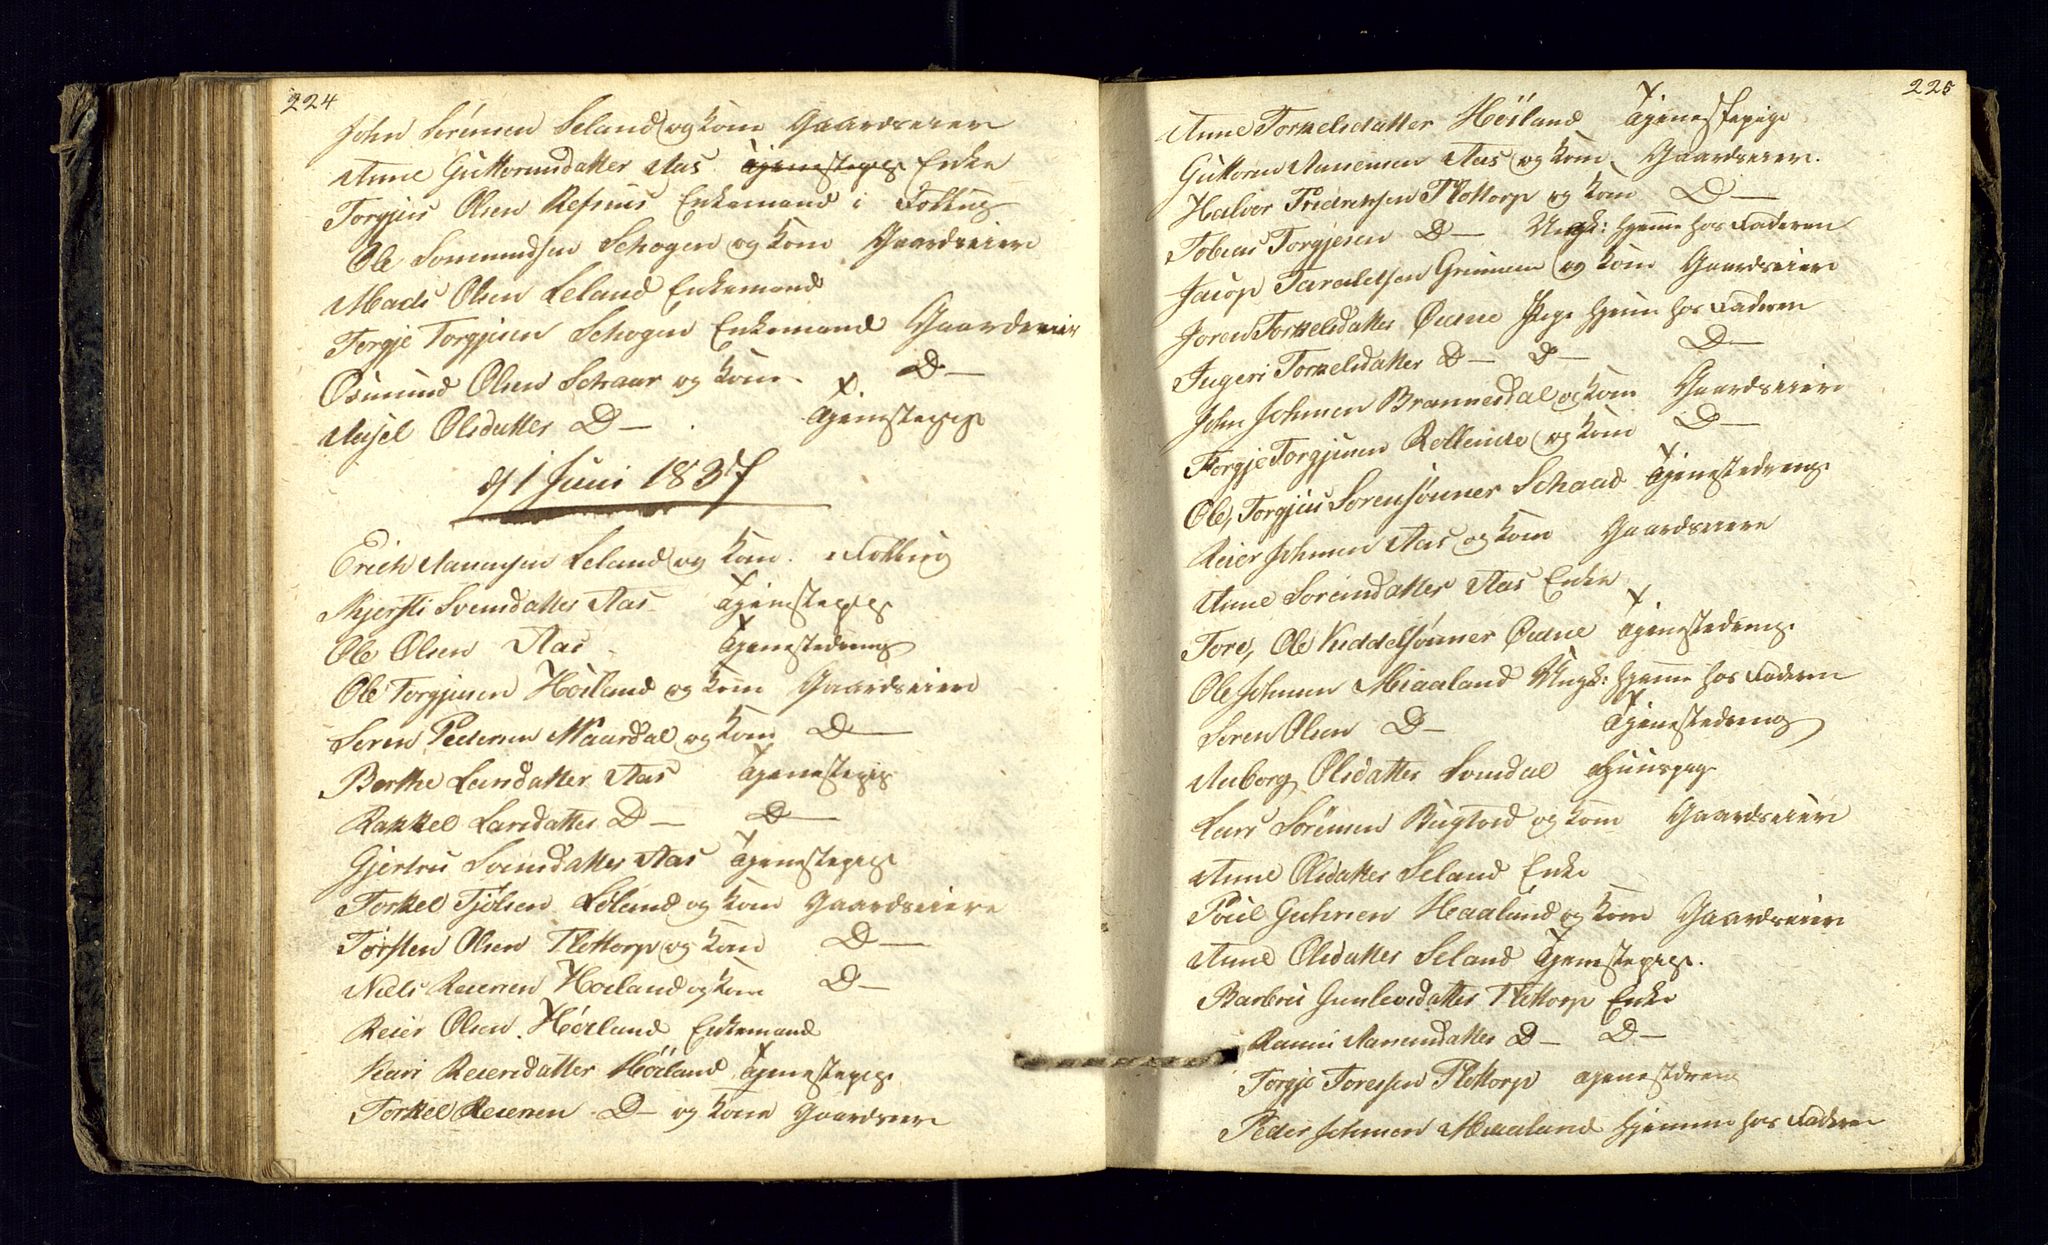 224
John Sörensen Leland og Kone Gaardseier
Anne Guttormsdatter Aas Tjenestepige Enke
Torgjus Olsen Refsnis Enkemand i Folkug
Ole Sommundsen Schogen og Kone Gaardseiere
Mads Olsen Leland Enkemand
Torgje Torgjusen Schogen Enkemand Gaardseier
Osmund Olsen Schaar og Kone D—
Aasel Olsdatter D— Tjenestepige
d/1 Juni 1837
Erich Aanensen Leland og Kone Folkug
Kjersti Svendsdatter Aas Tjenestepige
Ole Olsen Aas Tjenestedreng
Ole Torgjusen Höiland og Kone Gaardseiere
Soren Pedersen Naardal og Kone D—
Berthe Larsdatter Aas Tjenestepige
Rakkel Larsdatter D— D—
Gjertru Svensdatter Aas Tjenestepige
Torkel Tjölsen Leland og Kone Gaardseiere
Torsten Olsen Flottorp og Kone D—
Niels Reiersen Hoiland og Kone D—
Reier Olsen Höiland Enkemand
Kari Reiersdatter Höiland Tjenestepige
Torkel Reiersen D— og Kone Gaardseier
225
Anne Torkelsdatter Höiland Tjenestepige
Guttorm Aanensen Aas og Kone Gaardseiere.
Halvor Fredriksen Flottorp og Kone D—
Tobias Torgjesen D— Ungk: hjemme hos Faderen
Jacop Taraldsen Grunnan og Kone Gaardseiere
Joren Torkelsdatter Øidne Pige hjeme hos Faderen
Ingeri Torkelsdatter D— D— D—
John Johnsen Brannesdal og Kone Gaardseiere
Torgje Torgjusen Rolleinse og Kone D—
Ole, Torgjus Sorensönner Schaad Tjenestedreng
Reier Johnsen Aas og Kone Gaardseiere
Anne Sorensdatter Aas Enke
Tore, Ole Kiddelsönner Øidne Tjenestedreng
Ole Johnsen Miaaland Ungk: hjemme hos Faderen
Soren Olsen D— Tjenestedreng
Aaborg Olsdatter Somdal Huuspige
Lars Sörensen Bugtord og Kone Gaardseiere
Anne Olsdatter Seland Enke
Poul Guhnsen Haaland og Kone Gaardseiere
Anne Olsdatter Seland Tjenestepige
Barbru Gunlevsdatter Flottorp Enke
Ranni Aanensdatter D— D—
Torgje Toressen Flottorp Tjenestdreng
Peder Johnsen Miaaland hjemme hos Faderen